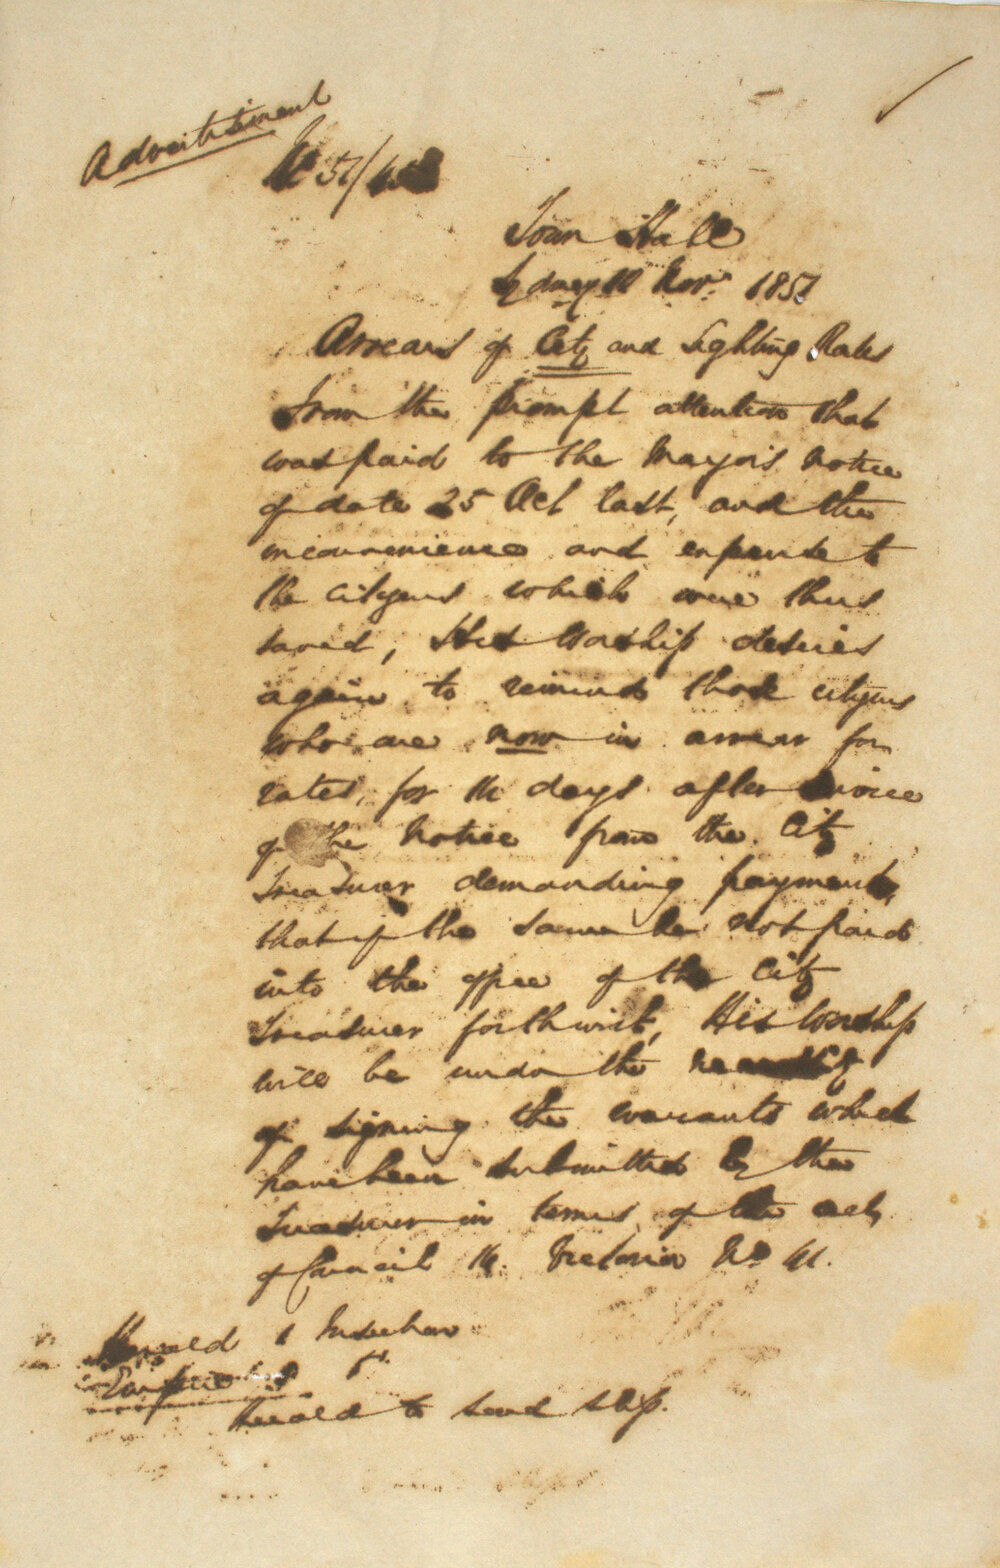 Advertisement
No 51/
Town Hall
Sydney Novr 1851
Arrears of City and Lighting Rates
From the prompt attention that
was paid to the Mayor's Notice
of date 25 Oct last, and the
inconvenience and expense to
the citizens which were thus
saved, His Worship desires
again to remind those citizens
who are now in arrear for
rates, for 14 days after service
of the Notice from the City
Treasurer demanding payment,
that if the same be not paid
into the office of the City
Treasurer forthwith, His Worship
will be under the necessity
of signing the warrants which
have been submitted by the
Treasurer in terms of the act
of Council 14 Victoria No 41.
Herald 1 Insertion
Empire
Herald to send slip.